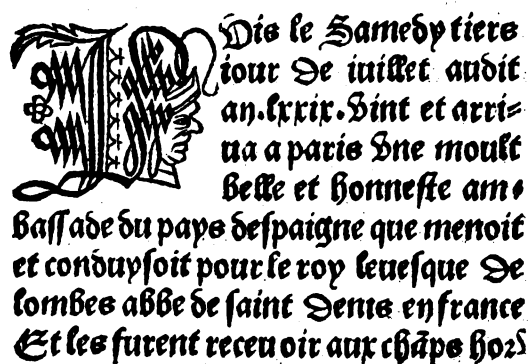 PVis le Samedy tiers
iour De iuillet audit
an.lxxix.Vint et arri=
ua a paris Vne moult
belle et honneste am=
bassade du pays despaigne que menoit
et conduysoit pour le roy leuesque De
lombes abbe de saint Denis en france
Et les furent receuoir aux chãps hors